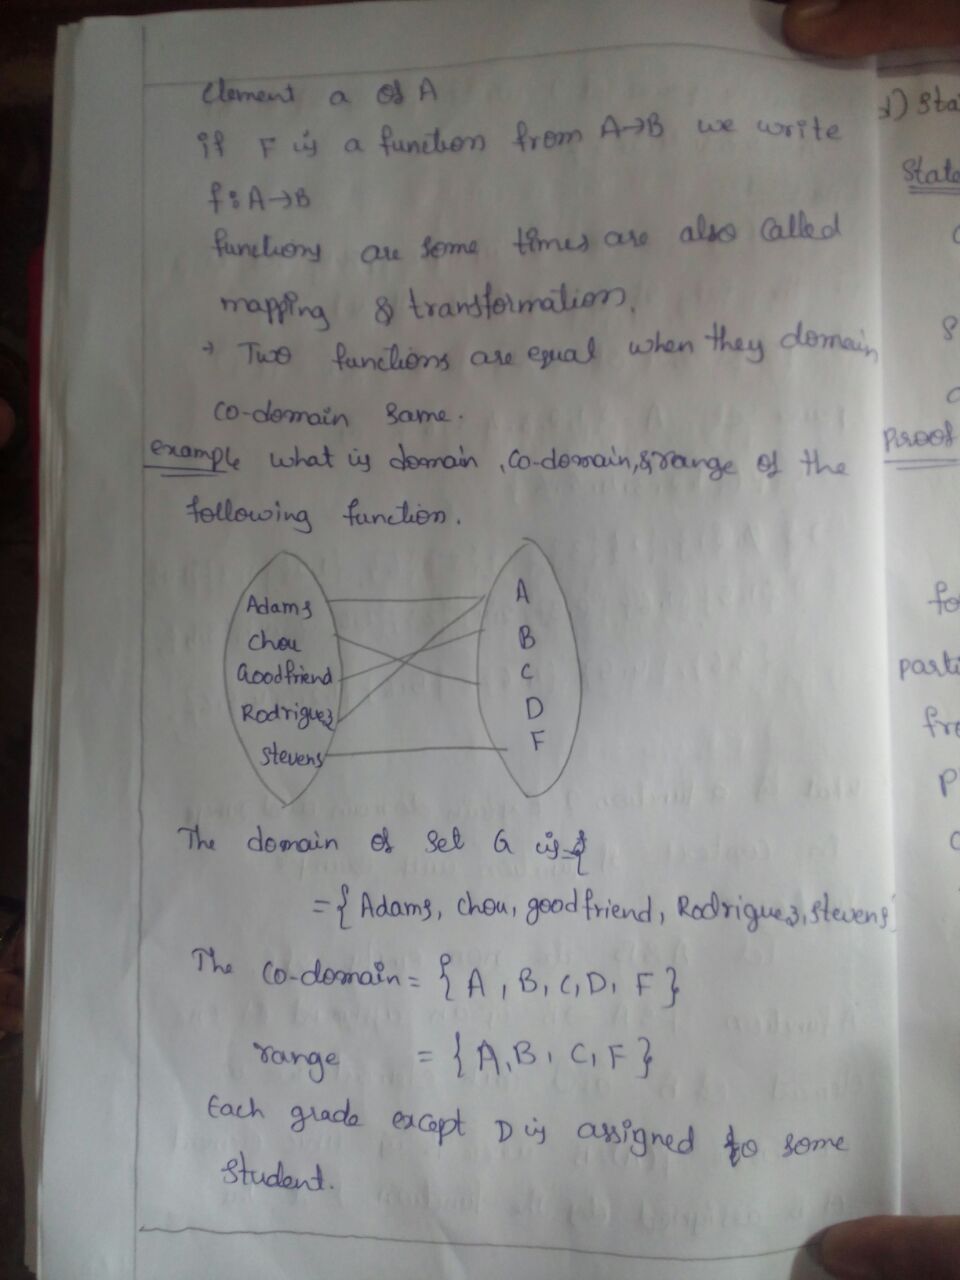 Element a of A
if F is a function from A→B we write
f : A→B
functions are some times are also called
mapping & transformation.
→ Two functions are equal when they domain
co-domain same.
example what is domain, co-domain, & range of the
following function.
Adams
chou
Goodfriend
Rodriguez
stevens
A
B
C
D
F
The domain of set G is {
= { Adams, chou, goodfriend, Rodriguez, stevens}
The co-domain = { A, B, C, D, F }
range = { A, B, C, F }
Each grade except D is assigned to some
student.
State
Proof
fo
parti
fro